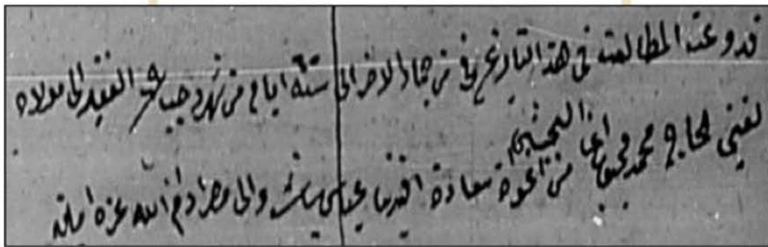 قد وقعت المطالعة في هذا التاريخ في من جماد الاخر الى ستة ايام من شهر رجب الفقير الى مولاه
الغني الحاج محمد اغا من اخوة سعادة افندينا عباس باشا والى مصر ادام الله عزه امين